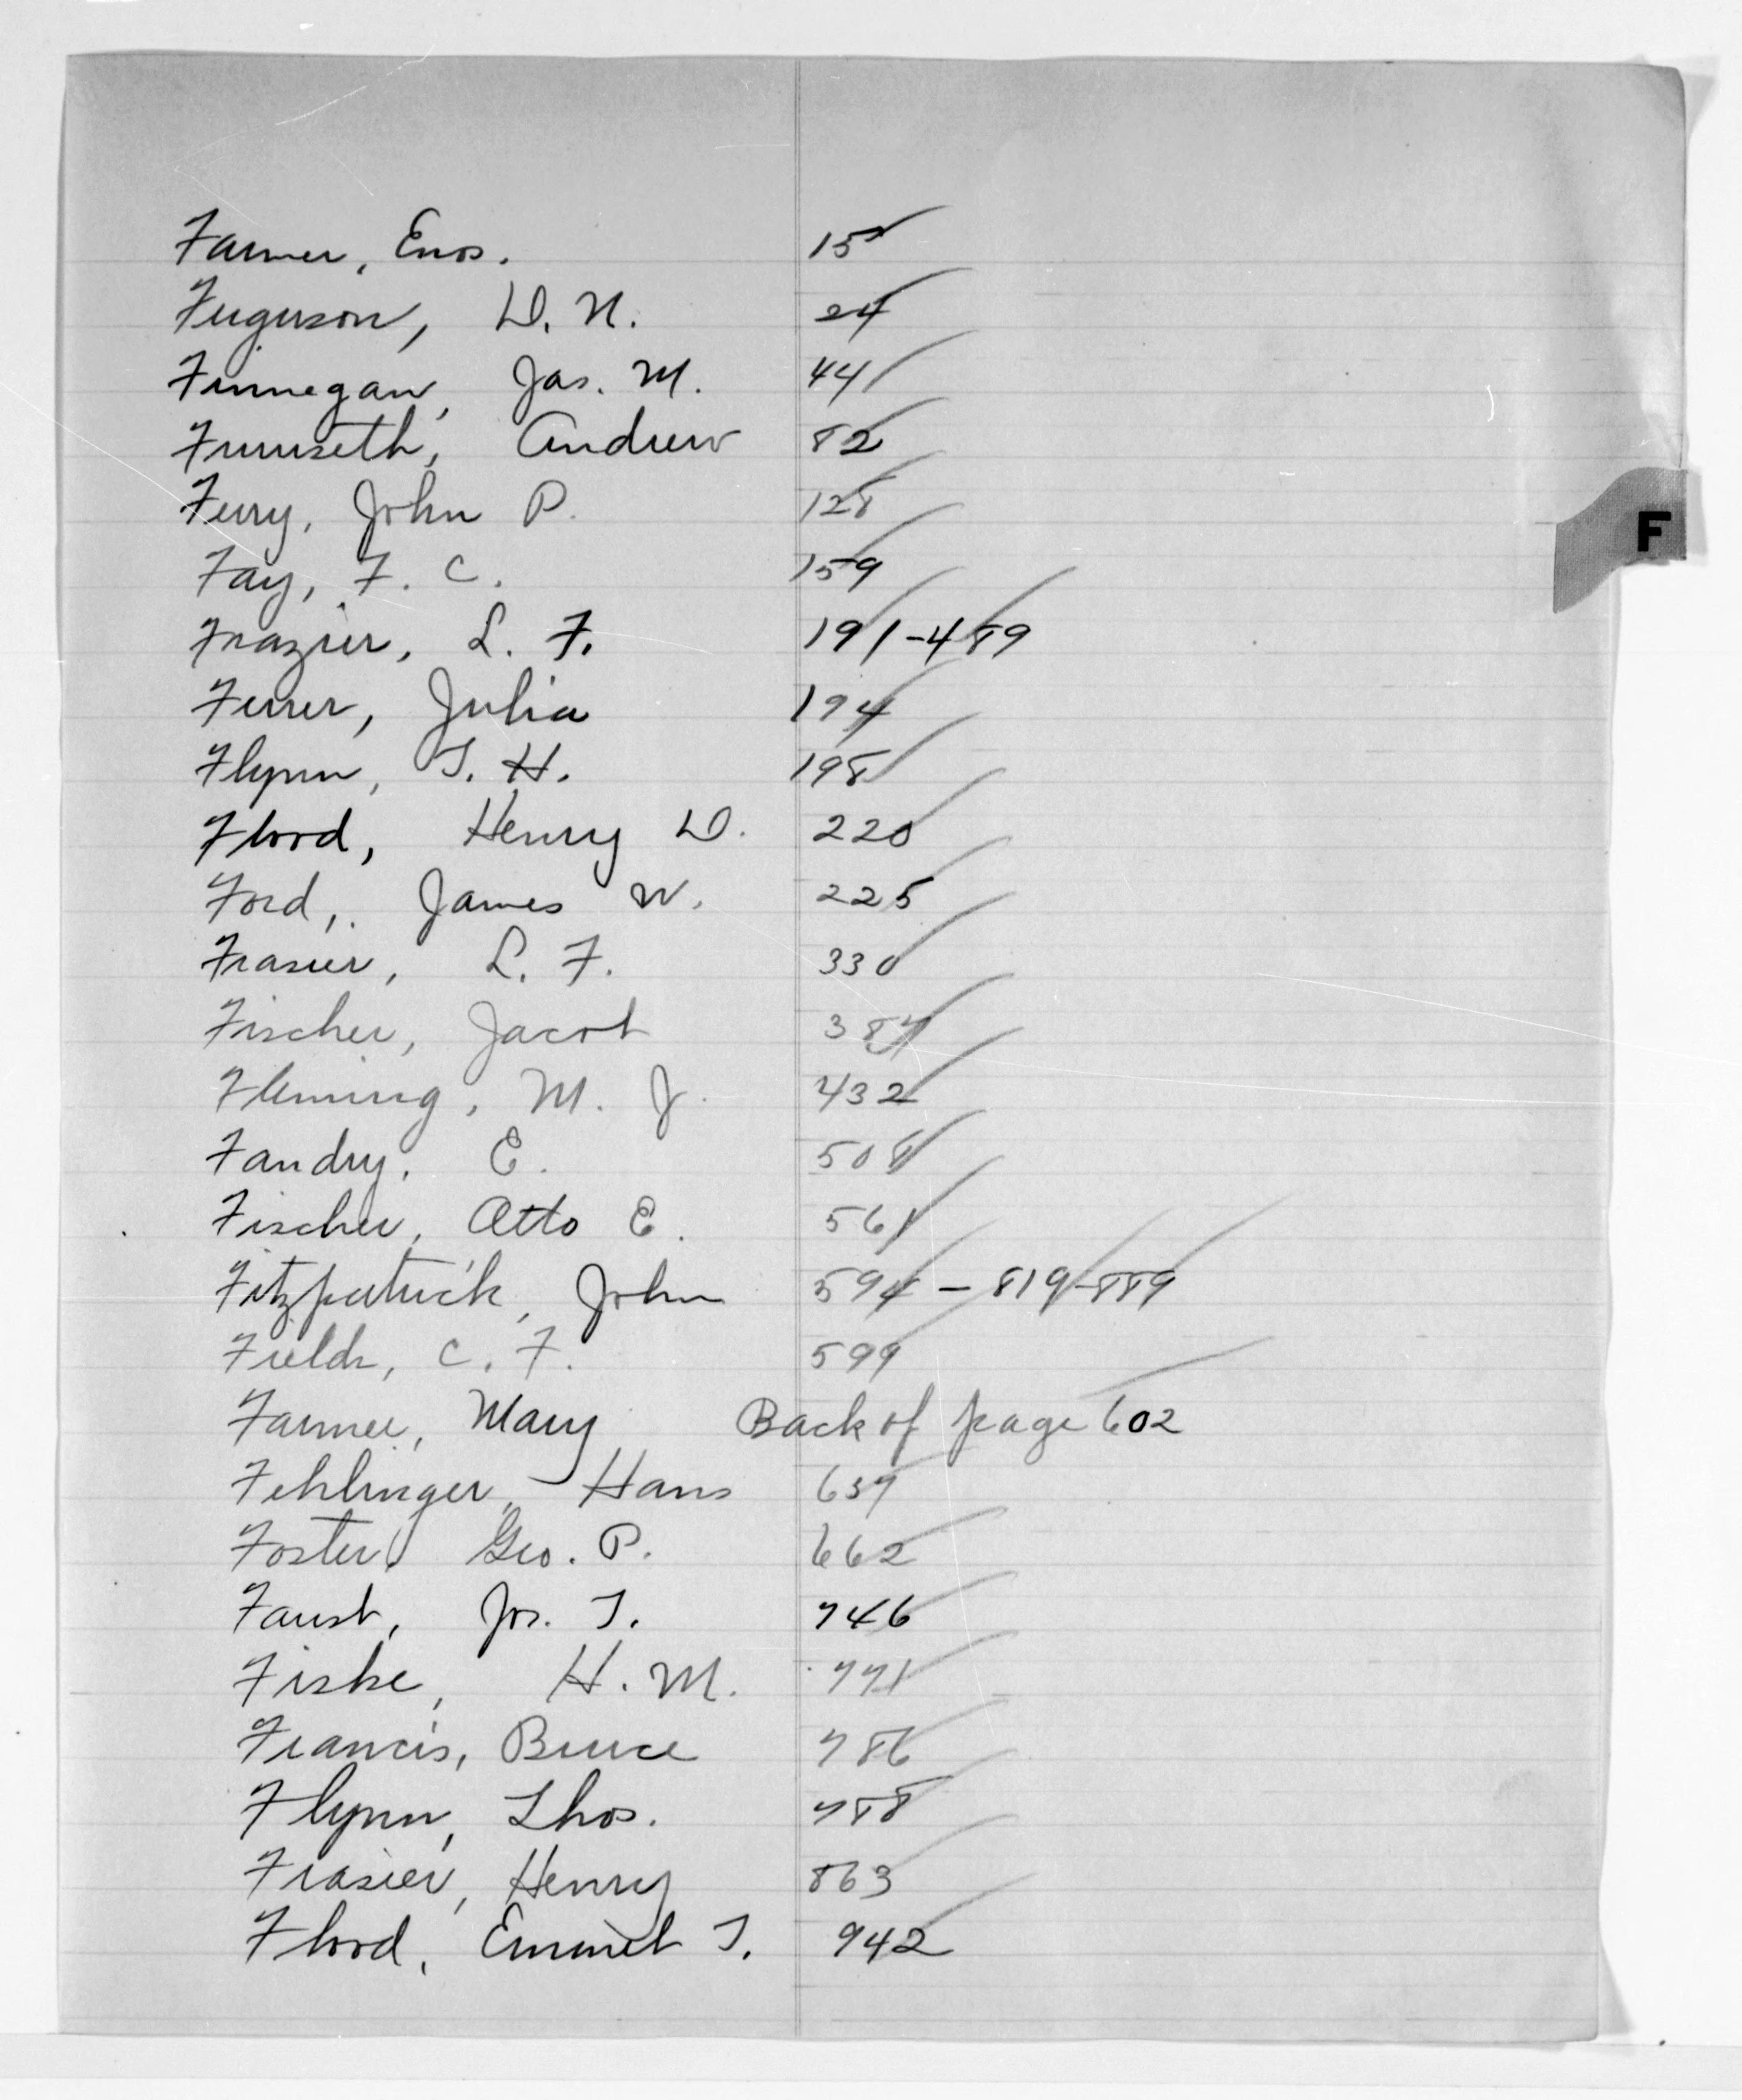 Farmer, Enos. 15
Ferguson, D. N. 24
Finnegan, Jas. M. 44
Furuseth, Andrew 82
Ferry, John P. 128
F
Fay, F. C. 159
Frazier, L. F. 191-489
Ferrer, Julia 194
Flynn, T. H. 198
Flood, Henry D. 220
Ford, James W. 225
Frasier, L. F. 330
Fischer, Jacob 387
Fleming, M. J. 432
Fandry, E. 508
Fischer, Otto E. 561
Fitzpatrick, John 594 - 819-889
Fields, C. F. 599
Farmer, Mary Back of page 602
Fehlinger, Hans 637
Foster, Geo. P. 662
Faust, Jos. T. 746
Fiske, H. M. 771
Francis, Bruce 786
Flynn, Thos. 788
Frasier, Henry 863
Flood, Emmet T. 942